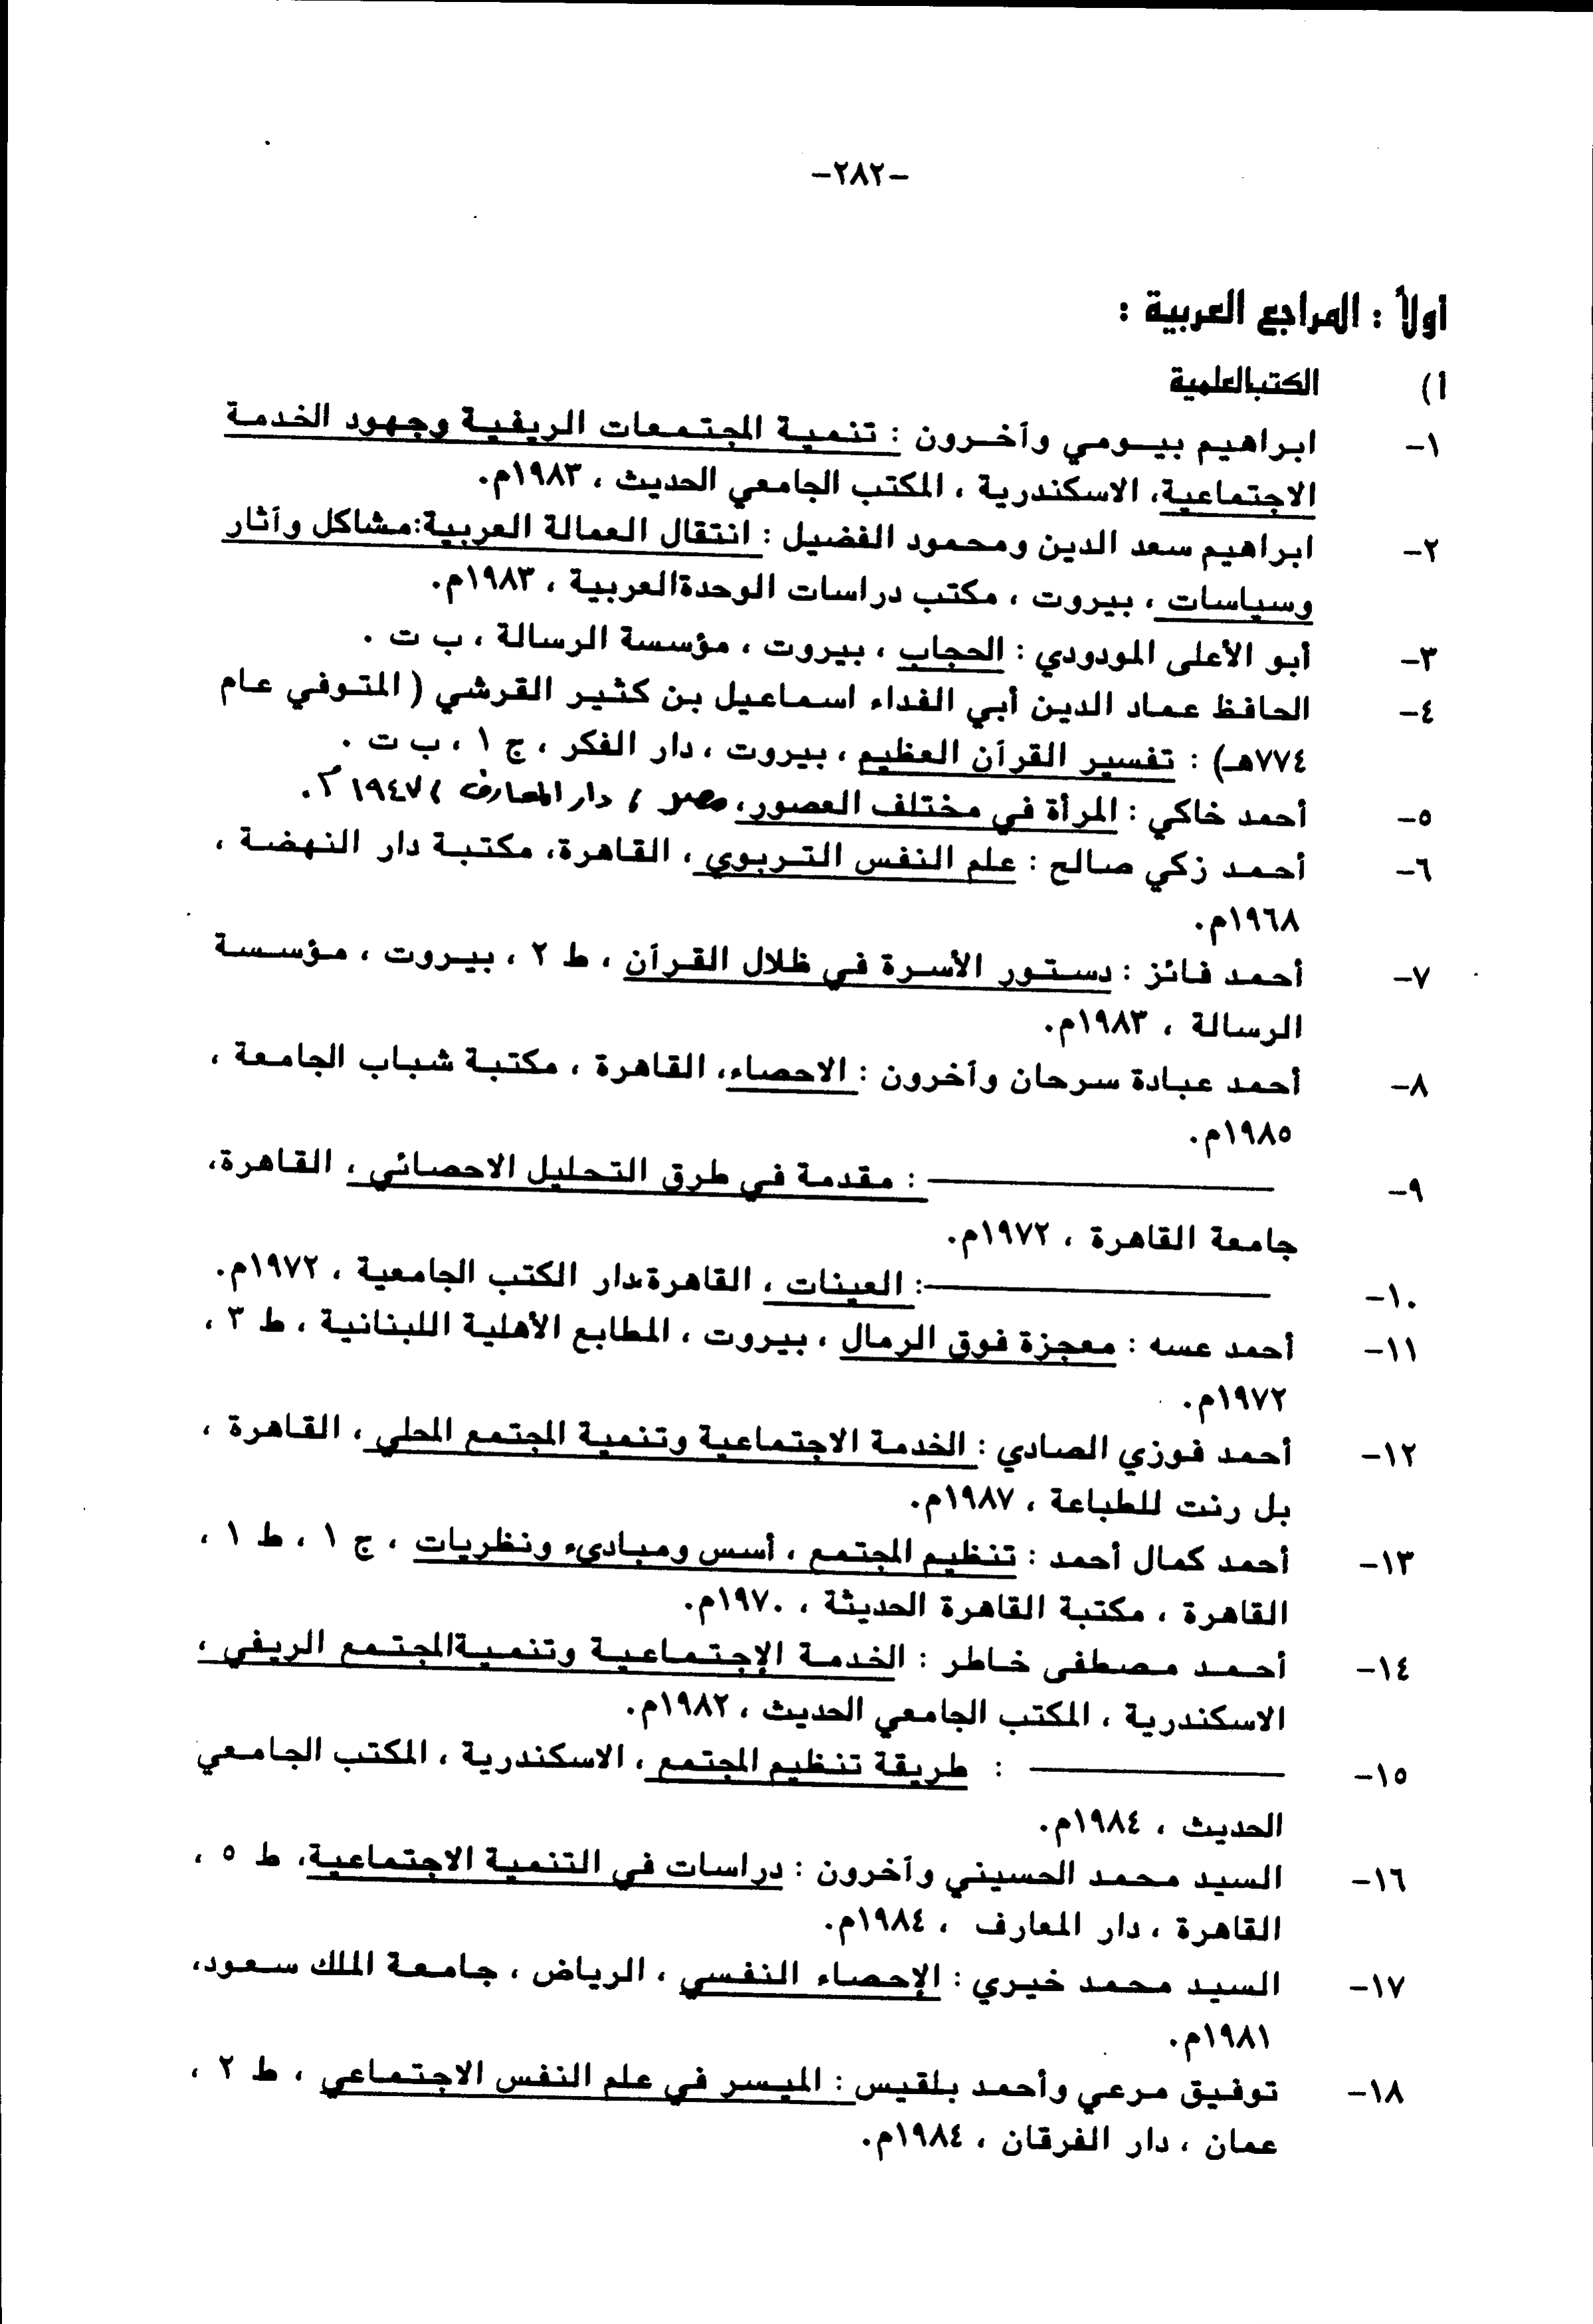 -٢٨٢-
أولاً : المراجع العربية :
أ) الكتب العلمية
١- ابراهيم بيومي وآخرون : تنمية المجتمعات الريفية وجهود الخدمة
الاجتماعية، الاسكندرية ، المكتب الجامعي الحديث ، ١٩٨٣م.
٢- ابراهيم سعد الدين ومحمود الفضيل : انتقال العمالة العربية:مشاكل وآثار
وسياسات ، بيروت ، مكتب دراسات الوحدةالعربية ، ١٩٨٣م.
٣- أبو الأعلى المودودي : الحجاب ، بيروت ، مؤسسة الرسالة ، ب ت .
٤- الحافظ عماد الدين أبي الفداء اسماعيل بن كثير القرشي ( المتوفي عام
٧٧٤هـ) : تفسير القرآن العظيم ، بيروت ، دار الفكر ، ج ١ ، ب ت .
٥- أحمد خاكي : المرأة في مختلف العصور، مصر ، دار المعارف ، ١٩٤٧م.
٦- أحمد زكي صالح : علم النفس التربوي ، القاهرة، مكتبة دار النهضة ،
١٩٦٨م.
٧- أحمد فائز : دستور الأسرة في ظلال القرآن ، ط ٢ ، بيروت ، مؤسسة
الرسالة ، ١٩٨٣م.
٨- أحمد عبادة سرحان وآخرون : الاحصاء، القاهرة ، مكتبة شباب الجامعة ،
١٩٨٥م.
٩- ـــــــــــــــــ : مقدمة في طرق التحليل الاحصائي ، القاهرة،
جامعة القاهرة ، ١٩٧٢م.
١٠- ـــــــــــــــــ: العينات ، القاهرة،دار الكتب الجامعية ، ١٩٧٢م.
١١- أحمد عسه : معجزة فوق الرمال ، بيروت ، المطابع الأهلية اللبنانية ، ط ٣ ،
١٩٧٢م.
١٢- أحمد فوزي الصادي : الخدمة الاجتماعية وتنمية المجتمع المحلي ، القاهرة ،
بل رنت للطباعة ، ١٩٨٧م.
١٣- أحمد كمال أحمد : تنظيم المجتمع ، أسس ومبادىء ونظريات ، ج ١ ، ط ١ ،
القاهرة ، مكتبة القاهرة الحديثة ، ١٩٧٠م.
١٤- أحمد مصطفى خاطر : الخدمة الإجتماعية وتنميةالمجتمع الريفي ،
الاسكندرية ، المكتب الجامعي الحديث ، ١٩٨٢م.
١٥- ـــــــــــــــــ : طريقة تنظيم المجتمع ، الاسكندرية ، المكتب الجامعي
الحديث ، ١٩٨٤م.
١٦- السيد محمد الحسيني وآخرون : دراسات في التنمية الاجتماعية، ط ٥ ،
القاهرة ، دار المعارف ، ١٩٨٤م.
١٧- السيد محمد خيري : الإحصاء النفسي ، الرياض ، جامعة الملك سعود،
١٩٨١م.
١٨- توفيق مرعي وأحمد بلقيس : الميسر في علم النفس الاجتماعي ، ط ٢ ،
عمان ، دار الفرقان ، ١٩٨٤م.